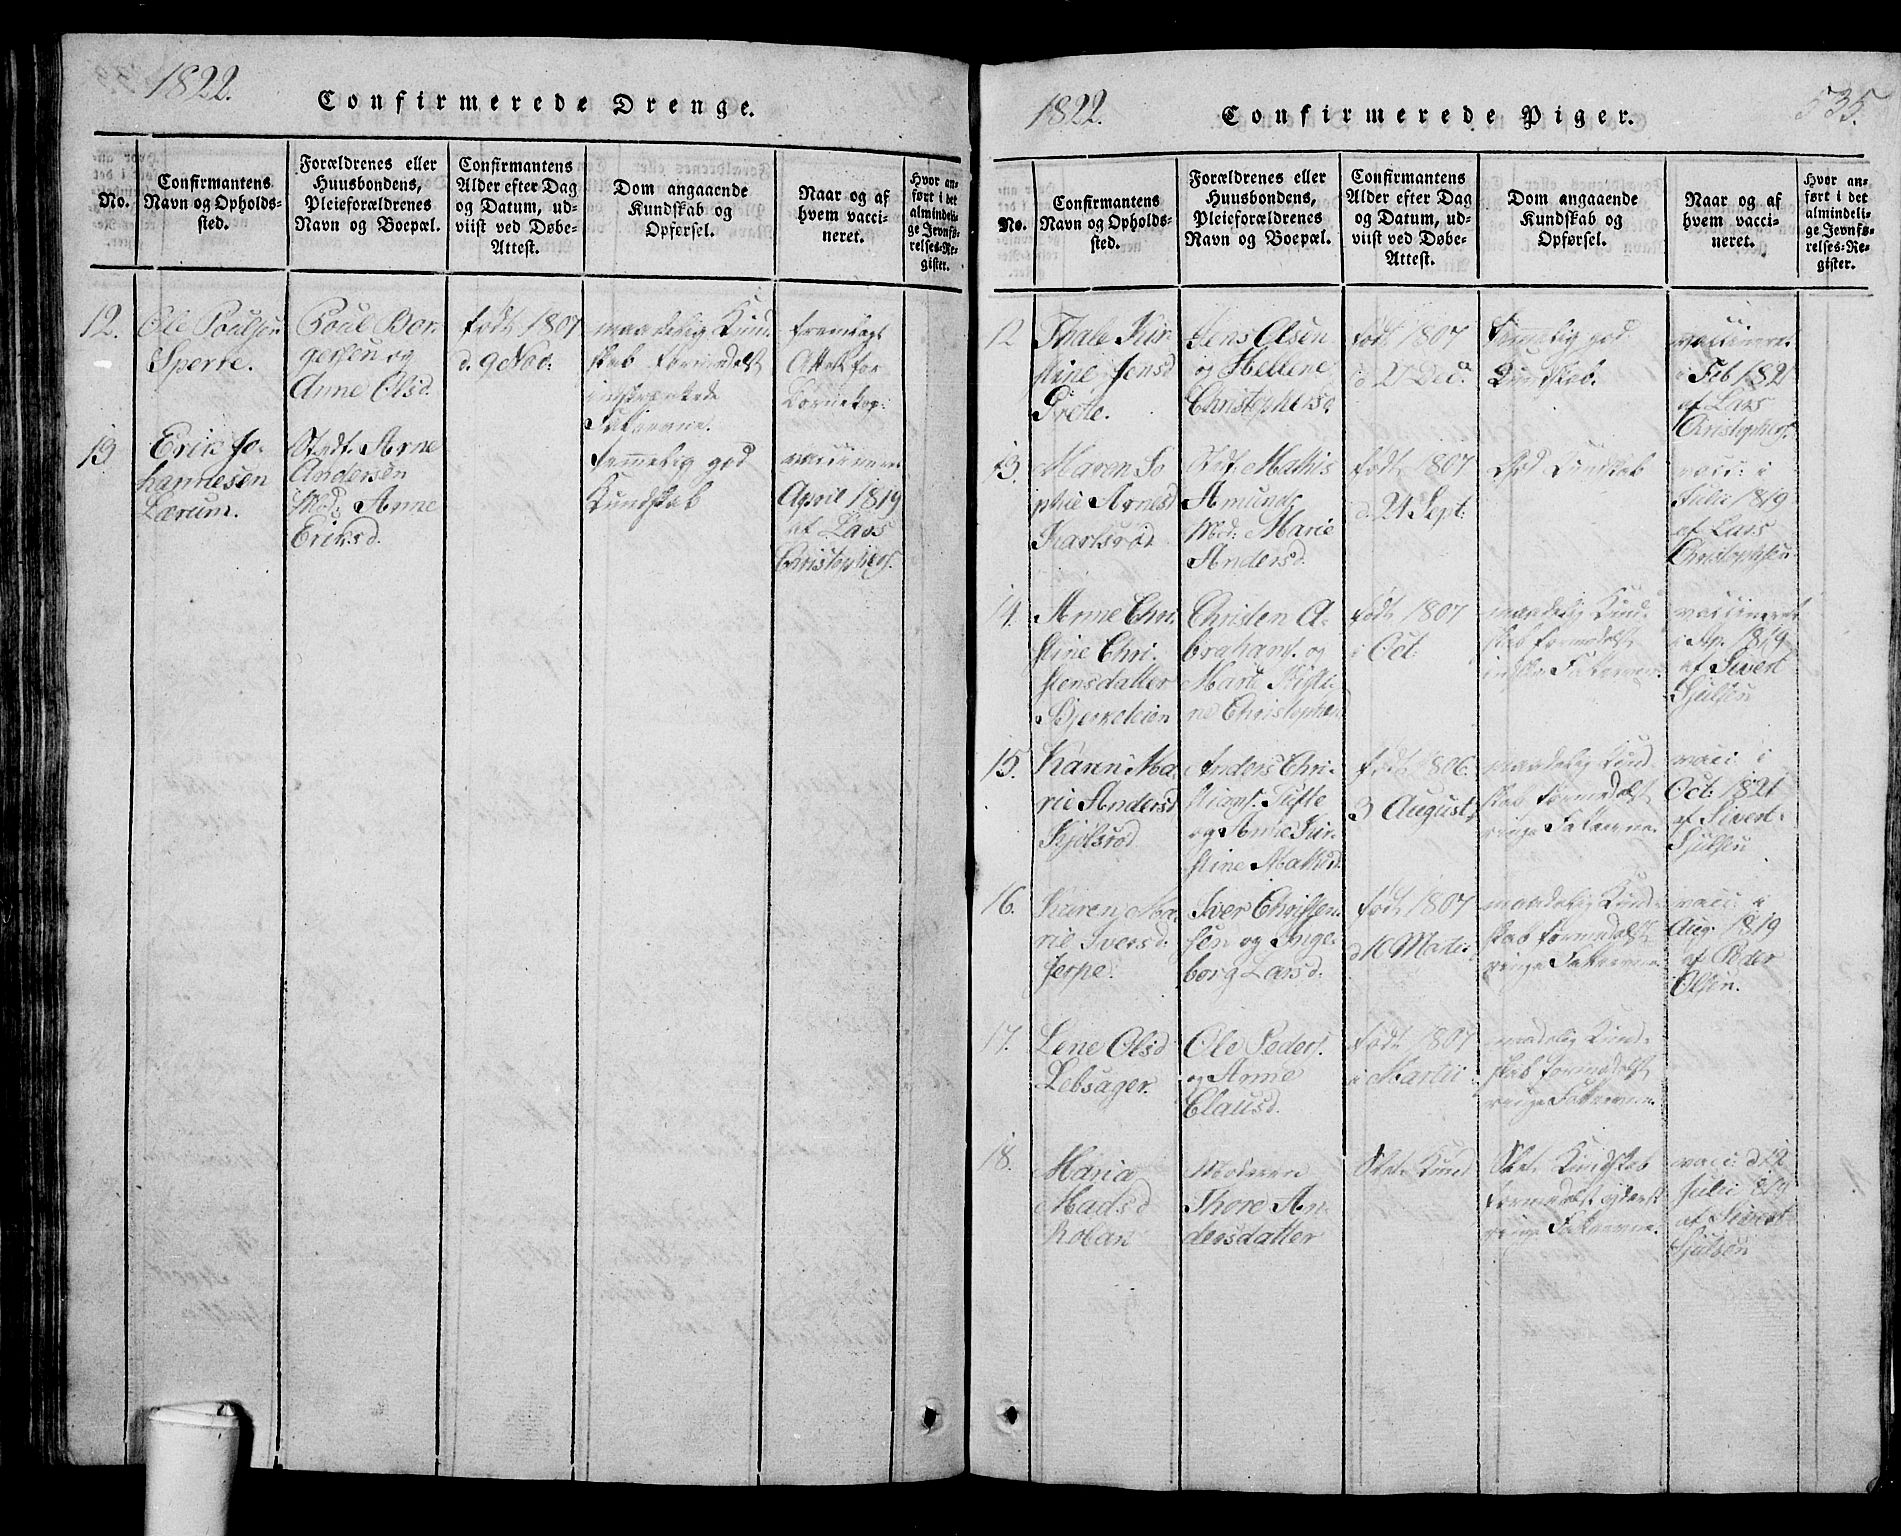 1822.
Confirmerede Drenge.
No.
Confirmantens
Navn og Opholds-
sted.
Forældrenes eller
Huusbondens,
Pleieforældrenes
Navn og Boepæl.
Confirmantens
Alder efter Dag
og Datum, ud-
viist ved Døbe-
Attest.
Dom angaaende
Kundskab og
Opførsel.
Naar og af
hvem vacci-
neret.
Hvor an-
ført i det
almindeli-
ge Jevnfø-
relses-Re-
gister.
12.
Ole Poulsen
Sperre.
Poul Bor-
gersen og
Anne Olsd.
født 1807
d. 9 Nov:
maadelig Kund-
skab formedelst
indskrænkede
Fatteevne.
fremlagt
Attest for
19
Erik Jo-
hannesen
Lærum.
Stedf. Arne
Andersen
Mod: Anne
Eriksd.
temmelig god
Kundskab
vaccineret
April 1819
af Lars
Christophers.
1822.
Confirmerede Piger.
535.
No.
Confirmantens
Navn og Opholds-
sted.
Forældrenes eller
Huusbondens,
Pleieforældrenes
Navn og Boepæl.
Confirmantens
Alder efter Dag
og Datum, ud-
viist ved Døbe-
Attest.
Dom angaaende
Kundskab og
Opførsel.
Naar og af
hvem vacci-
neret.
Hvor an-
ført i det
almindeli-
ge Jevnfø-
relses-Re-
gister.
12
Thale Kir-
stine Jensd
Grete.
Jens Olsen
og Hellene
Christophersd
født 1807
d 21 Dec.
Temmelig god
Kundskab.
vaccineret
i Feb 1821
af Lars
Christophers.
13.
Maren So
phie Arnesd
Karlsrød
Stedf. Mathis
Amunds
Mod: Marie
Andersd.
født 1807
d. 24 Sept:
God Kundskab
vacc: i
Juli 1819
af Lars
Christophsen
14.
Anne Chri-
stine Chri-
stensdatter
Christen A-
brahams. og
Marte Kirsti-
ne Christophsd.
født 1807
i Oct:
maadelig Kund-
skab formedelst
Fatteevne.
vaccineret
i Ap. 1819
af Sivert
Sjulsen
15.
Karen Ma-
rie Andersd
Kjølsrød
Anders Chri-
stians. Tufte
og Anne Kir-
stine Mathisd.
født 1806.
3 August
maadelig Kund-
skab formedelst
ringe Fatteevne.
vacc: i
Oct: 1821
af Sivert
Sjulsen
16.
Karen Ma-
rie Iversd.
Jerpe.
Iver Christen-
sen og Inge-
borg Larsd.
født 1807
d 16 Martii
maadelig Kund-
skab formedelst
ringe Fatteevne
vacc: i
Aug: 1819
af Peder
Olsen.
17.
Lene Olsd
Lebsager.
Ole Peders.
og Anne
Clausd.
født 1807
i Martii
maadelig Kund-
skab formedelst
ringe Fatteevne.
18.
Maria
Madsd
Roban
Moderen
Thore An-
dersdatter
Slet Kund
Slet Kundskab
formedelst yderst
ringe Fatteevne.
vacc: d 12
Julii 1819
af Sivert
Sjulsen